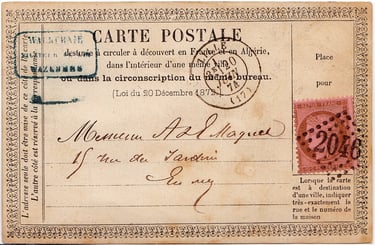 CARTE POSTALE
destinée à circuler à découvert en France et en Algérie,
dans l'intérieur d'une même ville
ou dans la circonscription du même bureau.
(Loi du 20 Décembre 1872)
WAZEMMES
LILLE
20
74
(57)
Place
pour
2046
Messieurs A & L Maquet
15 rue du Jardin
En ville
Lorsque la carte
est à destination
d'une ville, indiquer
très-exactement
la rue et le numéro de
la maison
L'adresse seule doit être mise de ce côté de la carte.
L'autre côté est réservé à la correspondance.